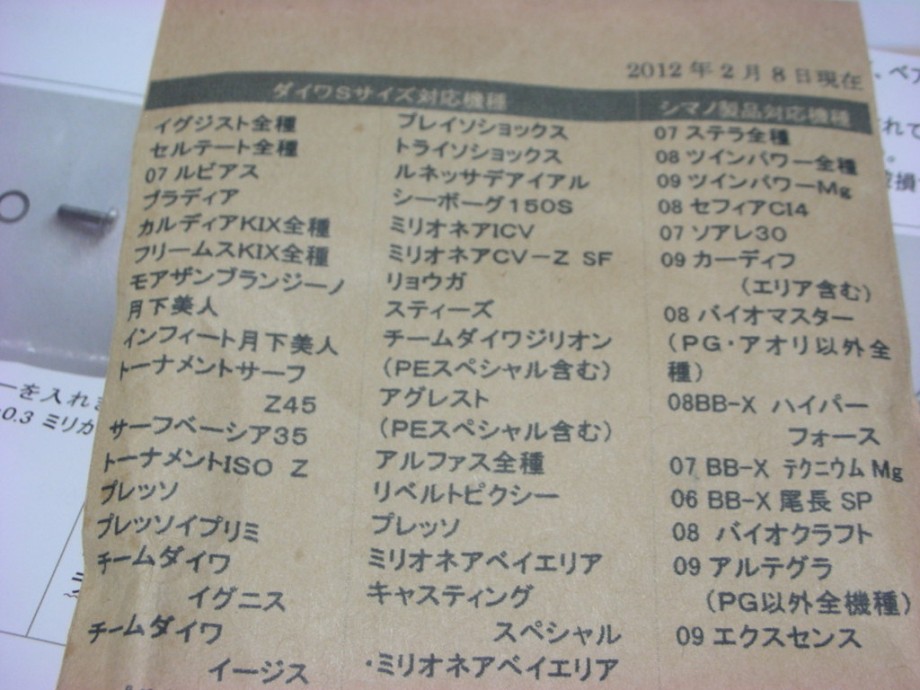 2012年2月8日現在
ダイワSサイズ対応機種
イグジスト全種
セルテート全種
07 ルビアス
ブラディア
カルディアKIX全種
フリームスKIX全種
モアザンブランジーノ
月下美人
インフィート月下美人
トーナメントサーフ
Z45
サーフベーシア35
トーナメントISO Z
プレッソ
プレッソイプリミ
チームダイワ
イグニス
チームダイワ
イージス
ブレイソショックス
トライソショックス
ルネッサデアイアル
シーボーグ150S
ミリオネアICV
ミリオネアCV－Z SF
リョウガ
スティーズ
チームダイワジリオン
(PEスペシャル含む)
アグレスト
(PEスペシャル含む)
アルファス全種
リベルトピクシー
プレッソ
ミリオネアベイエリア
キャスティング
スペシャル
・ミリオネアベイエリア
シマノ製品対応機種
07 ステラ全種
08 ツインパワー全種
09 ツインパワーMg
08 セフィアCI4
07 ソアレ30
09 カーディフ
(エリア含む)
08 バイオマスター
(PG・アオリ以外全
種)
08BB-X ハイパー
フォース
07 BB-X テクニウム Mg
06 BB-X 尾長 SP
08 バイオクラフト
09 アルテグラ
(PG以外全機種)
09 エクスセンス
ーを入れ
0.3 ミリ